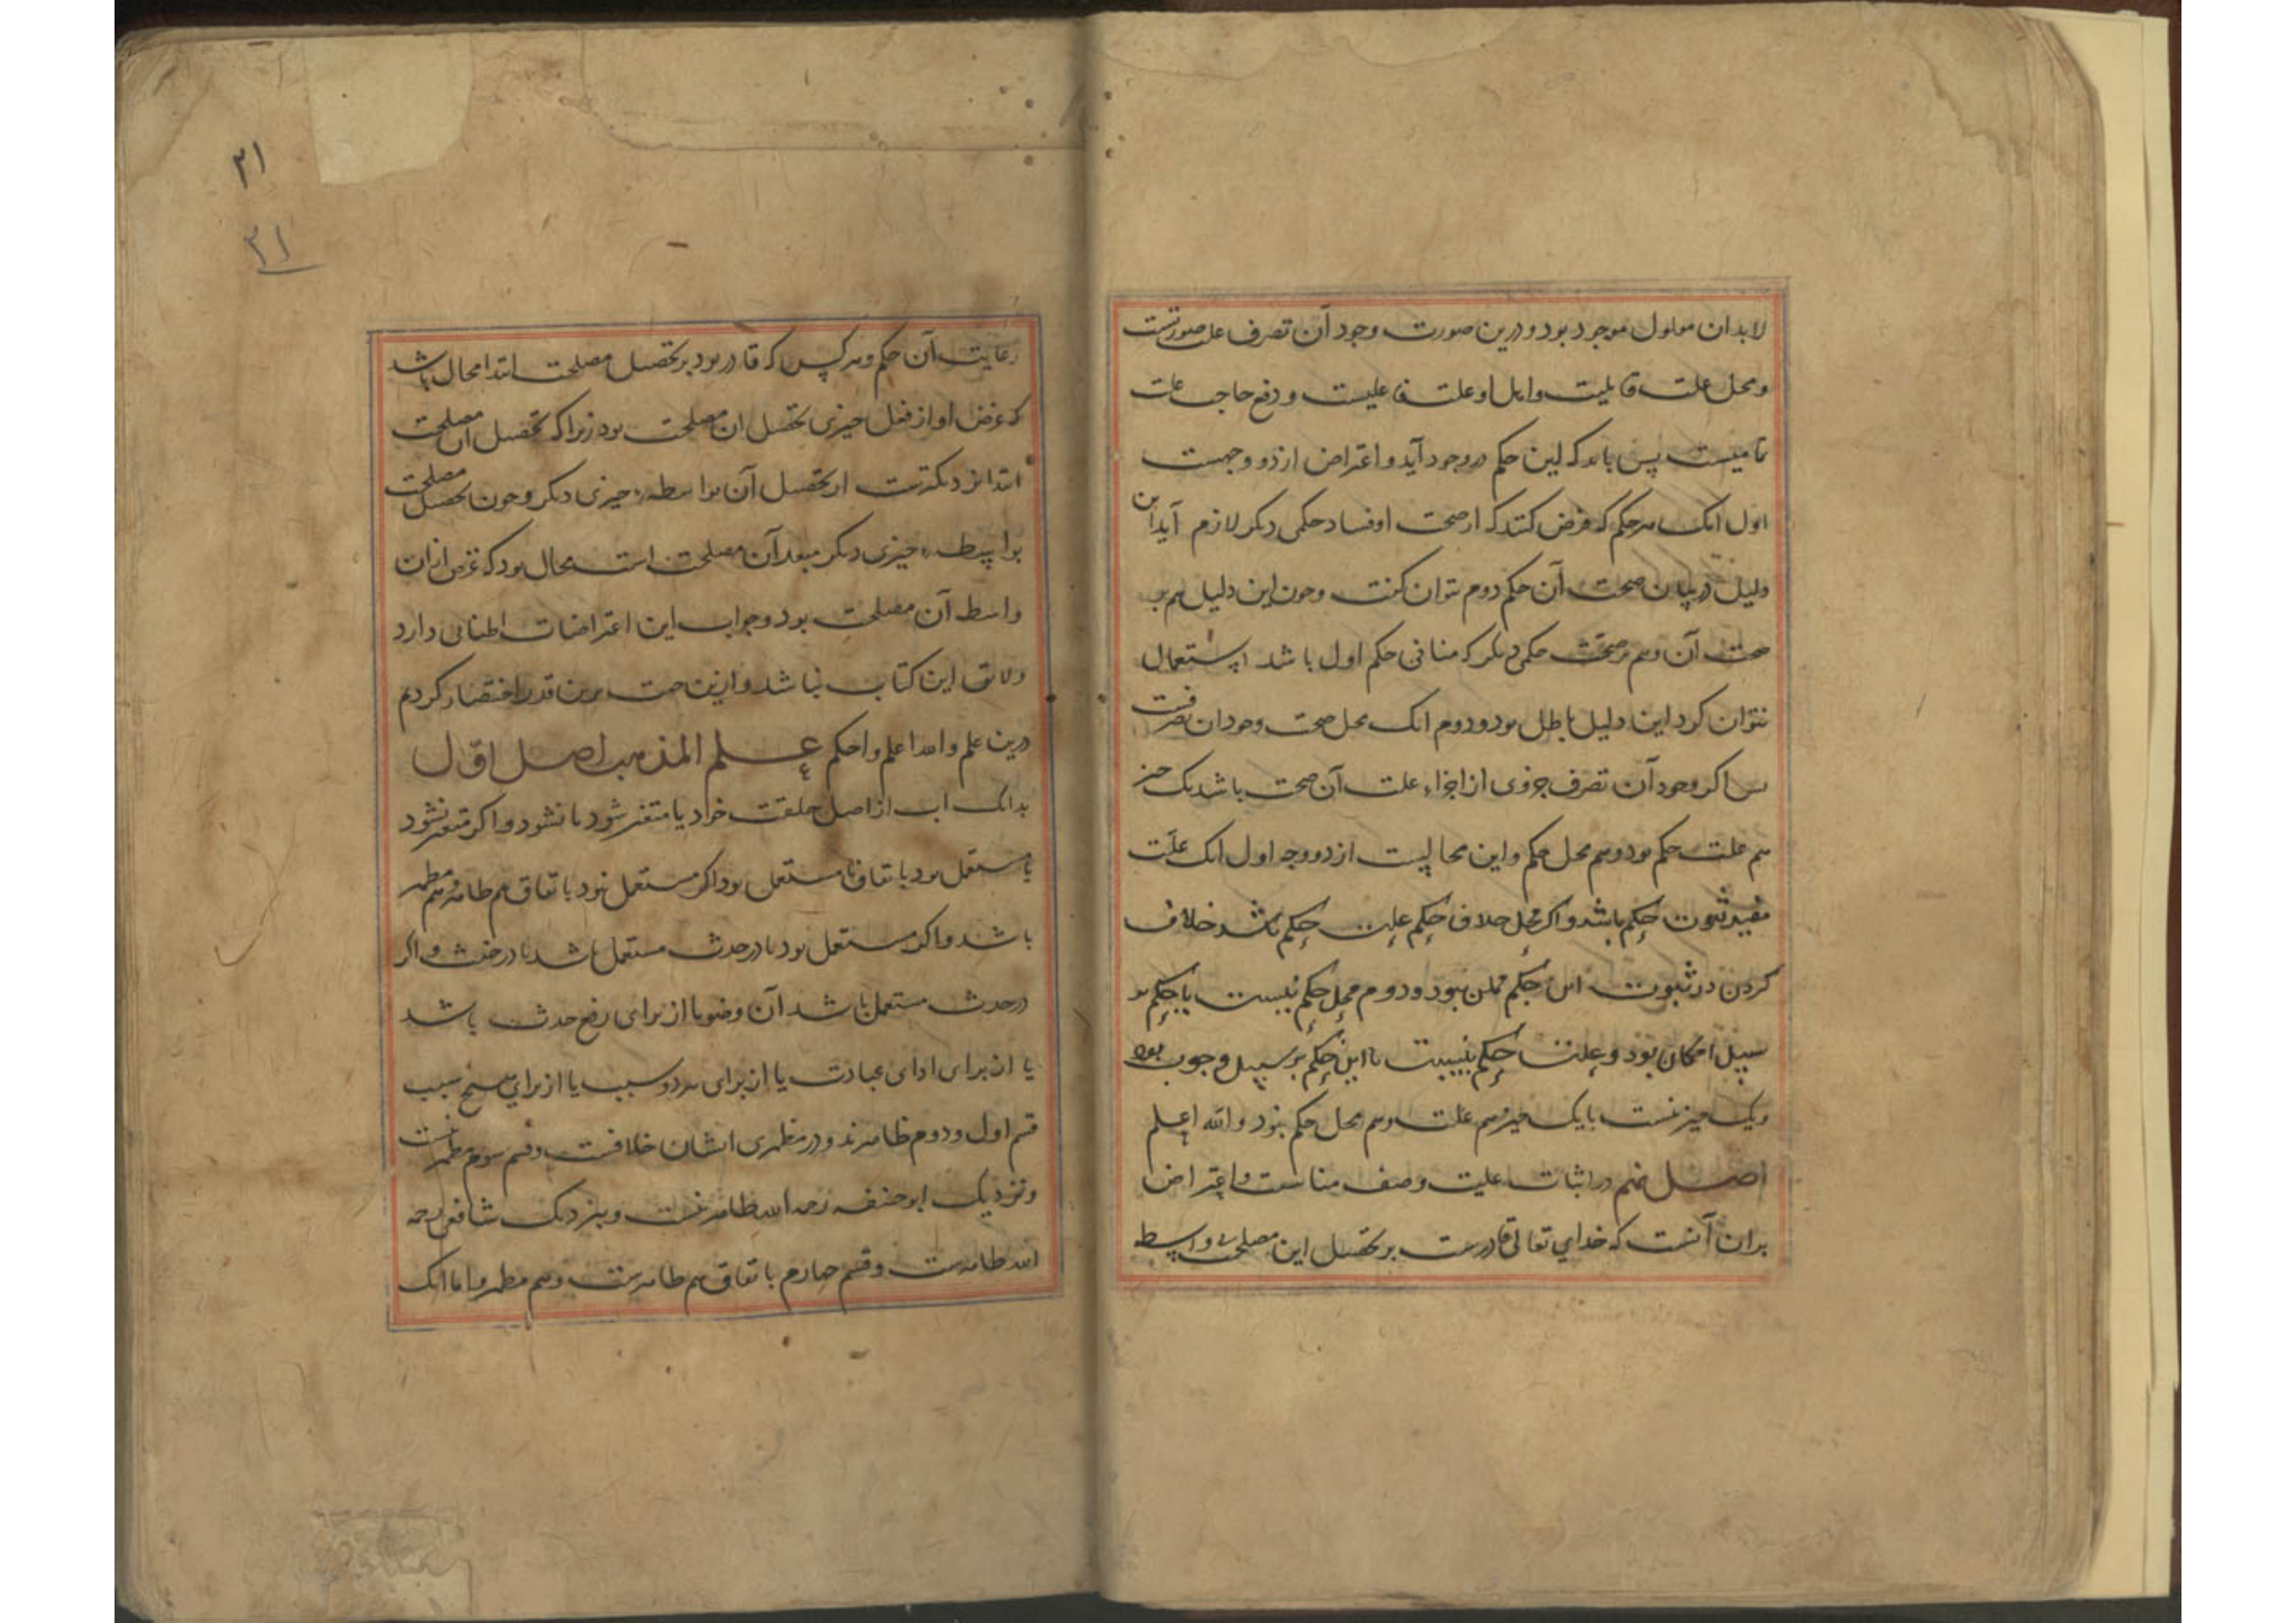 لابد ان معلول موجود بود و درین صورت وجود آن تصرف علت صورتست
و محل علت قابلیت و اهل او علت فاعلیست و دفع حاجت علت
تمامیست پس باید که این حکم در وجود آید و اعتراض از دو وجهست
اول انک هر حکم که فرض کنند که از صحت او فساد حکمی دیکر لازم آید این
دلیل در بیان صحت آن حکم دوم بتوان کفت و چون این دلیل هم بر
صحت آن و هم بر صحت حکمی دیکر که منافی حکم اول باشد استعمال
بتوان کرد این دلیل باطل بود و دوم انک محل صحت وجود ان تصرفست
پس اکر وجود آن تصرف جزوی از اجزاء علت آن صحت باشد یک چیز
هم علت حکم بود و هم محل حکم و این محالیست از دو وجه اول انک علت
مفید ثبوت حکم باشد و اکر محل خلاف حکم علت حکم باشد خلاف
کردن در ثبوت این حکم ممکن نبود و دوم محل حکم نسبت با حکم بر
سبیل امکان بود و علت حکم نسبت با این حکم بر سبیل وجوب بود
و یک چیز نسبت بایک چیز هم علت و هم محل حکم نبود والله اعلم
اصل نهم در اثبات علیت وصف مناسبت و اعتراض
بران آنست که خدای تعالی قادرست بر تحصیل این مصلحت بی واسطه
۳۱
۳۱
رعایت آن حکم و هر کس که قادر بود بر تحصیل مصلحت ابتدا محال باشد
که غرض او از فعل چیزی تحصیل ان مصلحت بود زیرا که تحصیل ان مصلحت
ابتدا نزدیکترست از تحصیل آن بواسطه چیزی دیکر و چون تحصیل مصلحت
بواسطه چیزی دیکر مبعد آن مصلحت است محال بود که غرض ازان
واسطه آن مصلحت بود و جواب این اعتراضات اطنابی دارد
و لایق این کتاب نباشد و ازین جهت برین قدر اختصار کردم
درین علم والله اعلم واحکم علم المذهب اصل اول
بدانک اب از اصل خلقت خود یا متغیر شود یا نشود و اکر متغیر نشود
یا مستعمل بود باتفاق یا مستعمل بود اکر مستعمل نبود باتفاق هم طاهر و هم مطهر
باشد و اکر مستعمل بود یا در حدث مستعمل باشد یا در خبث و اکر
در حدث مستعمل باشد آن وضو یا از برای رفع حدث باشد
یا از برای ادای عبادت یا از برای هر دو سبب یا از برای هیچ سبب
قسم اول و دوم طاهرند و در مطهری ایشان خلافست و قسم سوم مطهر نیست
و نزدیک ابوحنیفه رحمه الله طاهر نیست و بنزدیک شافعی رحمه
الله طاهرست و قسم چهارم باتفاق هم طاهرست و هم مطهر و اما انک